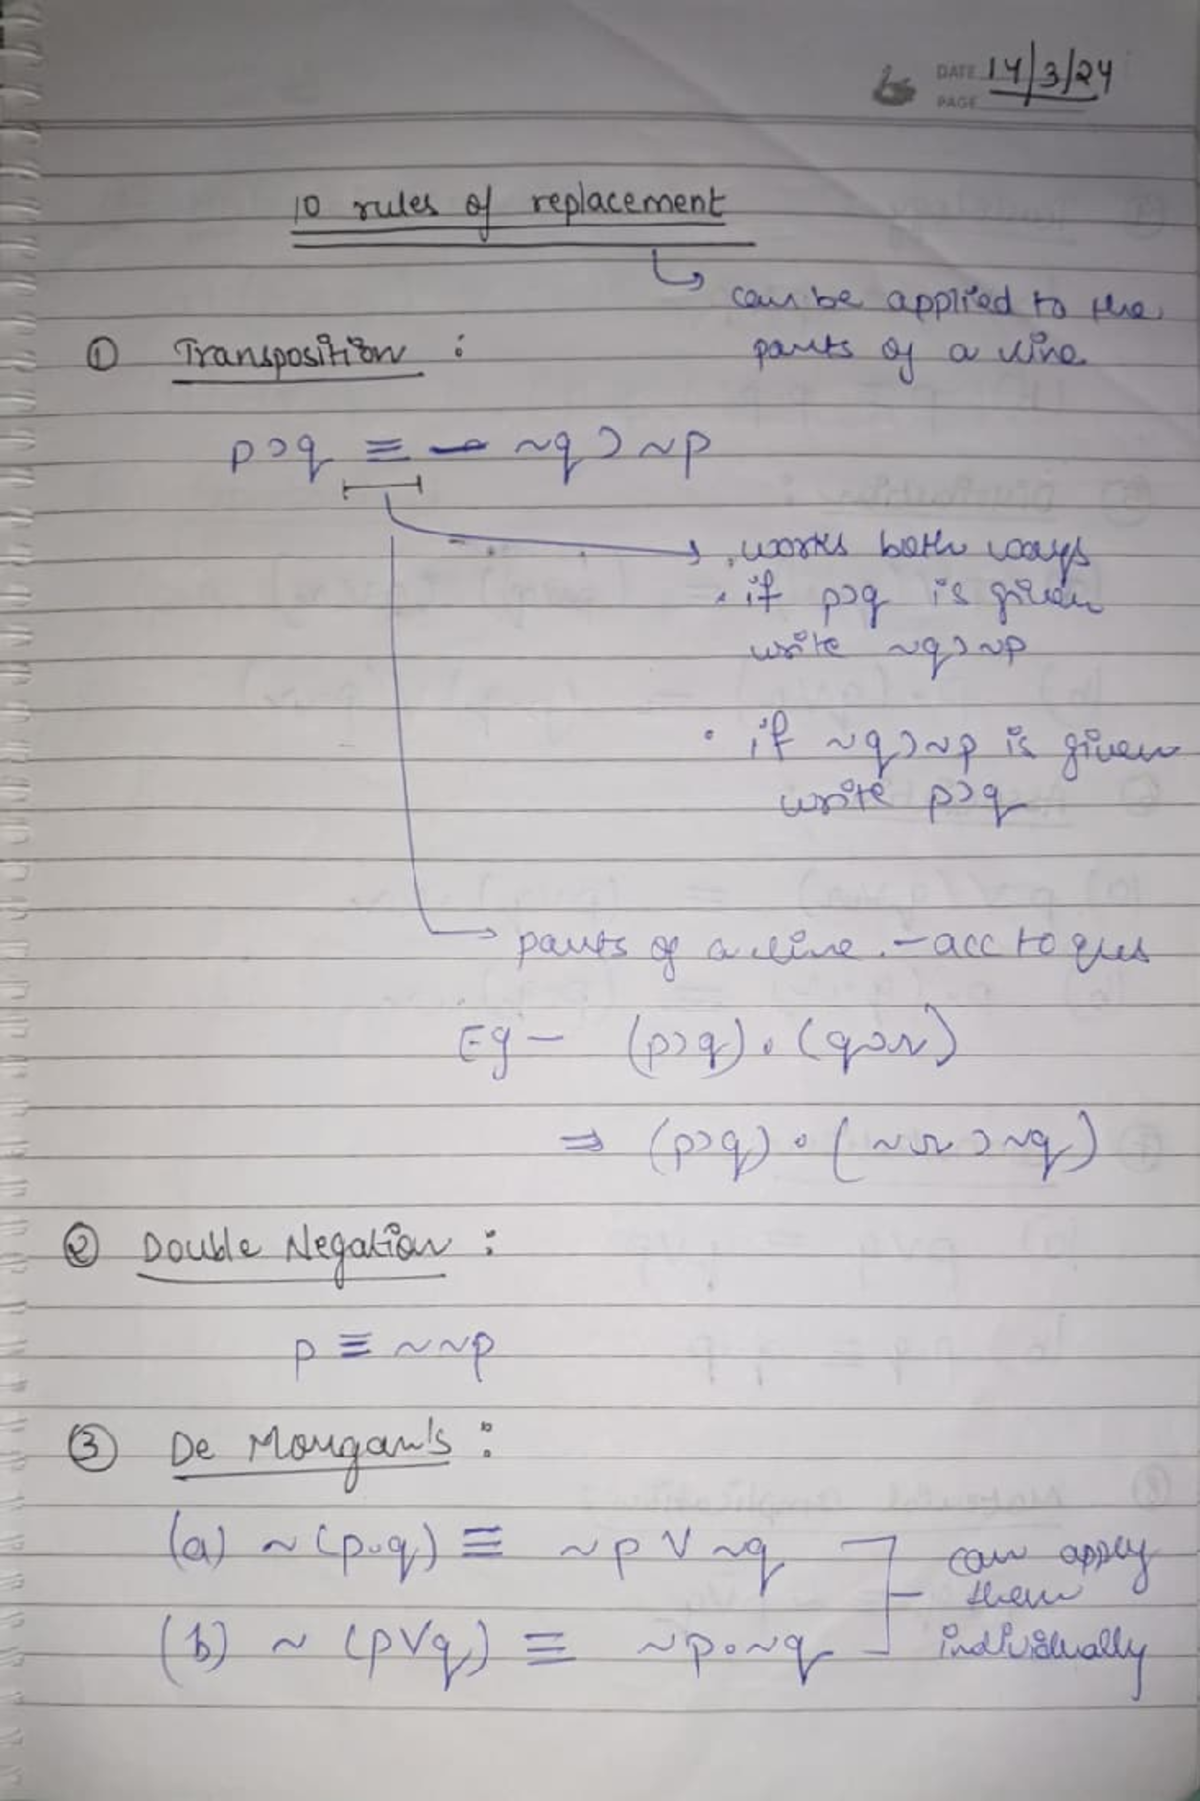 DATE 14/3/24
PAGE
10 rules of replacement
↳ can be applied to the
parts of a line
① Transposition :
p⊃q ≡ ~q⊃~p
→ . works both ways
. if p⊃q is given
write ~q⊃~p
. if ~q⊃~p is given
write p⊃q
→ parts of a line. – acc to ques
Eg – (p⊃q) . (q⊃r)
⇒ (p⊃q) . (~r⊃~q)
② Double Negation :
p ≡ ~~p
③ De Morgan's :
(a) ~(p.q) ≡ ~p∨~q
can apply
them
(b) ~(p∨q) ≡ ~p.~q
individually